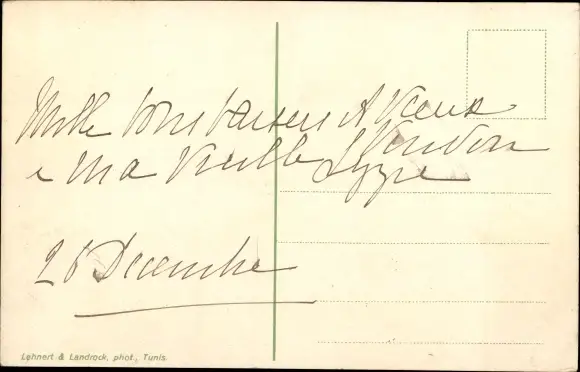 Mille bons baisers & Vœux
a ma Vieille
26 Decembre
Lehnert & Landrock, phot., Tunis.